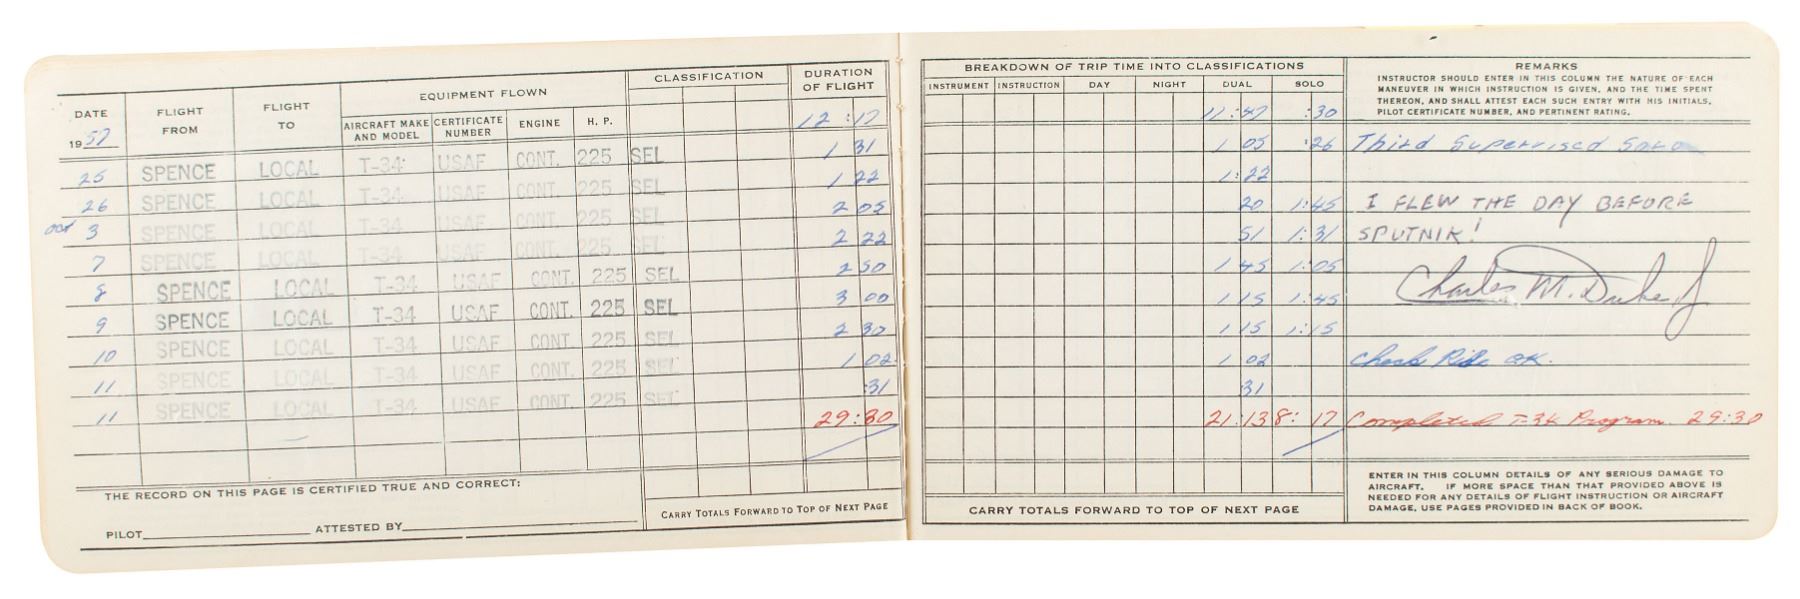 DATE
FLIGHT FROM
FLIGHT TO
EQUIPMENT FLOWN
AIRCRAFT MAKE AND MODEL
CERTIFICATE NUMBER
ENGINE
H. P.
CLASSIFICATION
DURATION OF FLIGHT
1957
12:17
25 SPENCE LOCAL T-34 USAF CONT. 225 SEL 1 31
26 SPENCE LOCAL T-34 USAF CONT. 225 SEL 1 22
Oct 3 SPENCE LOCAL T-34 USAF CONT. 225 SEL 2 05
7 SPENCE LOCAL T-34 USAF CONT. 225 SEL 2 22
8 SPENCE LOCAL T-34 USAF CONT. 225 SEL 2 50
9 SPENCE LOCAL T-34 USAF CONT. 225 SEL 3 00
10 SPENCE LOCAL T-34 USAF CONT. 225 SEL 2 30
11 SPENCE LOCAL T-34 USAF CONT. 225 SEL 1 02
11 SPENCE LOCAL T-34 USAF CONT. 225 SEL :31
29:30
THE RECORD ON THIS PAGE IS CERTIFIED TRUE AND CORRECT:
PILOT ATTESTED BY
CARRY TOTALS FORWARD TO TOP OF NEXT PAGE
BREAKDOWN OF TRIP TIME INTO CLASSIFICATIONS
INSTRUMENT INSTRUCTION DAY NIGHT DUAL SOLO
REMARKS
INSTRUCTOR SHOULD ENTER IN THIS COLUMN THE NATURE OF EACH
MANEUVER IN WHICH INSTRUCTION IS GIVEN, AND THE TIME SPENT
THEREON, AND SHALL ATTEST EACH SUCH ENTRY WITH HIS INITIALS,
PILOT CERTIFICATE NUMBER, AND PERTINENT RATING.
11:47 :30
1 05 :26 Third Supervised Solo
1:22
20 1:45 I FLEW THE DAY BEFORE
51 1:31 SPUTNIK!
1 45 1:05 Charles M. Duke Jr
1 15 1:45
1 15 1:15
1 02 Check Ride OK.
:31
21:13 8:17 Completed T-34 Program 29:30
ENTER IN THIS COLUMN DETAILS OF ANY SERIOUS DAMAGE TO
AIRCRAFT. IF MORE SPACE THAN THAT PROVIDED ABOVE IS
NEEDED FOR ANY DETAILS OF FLIGHT INSTRUCTION OR AIRCRAFT
DAMAGE, USE PAGES PROVIDED IN BACK OF BOOK.
CARRY TOTALS FORWARD TO TOP OF NEXT PAGE